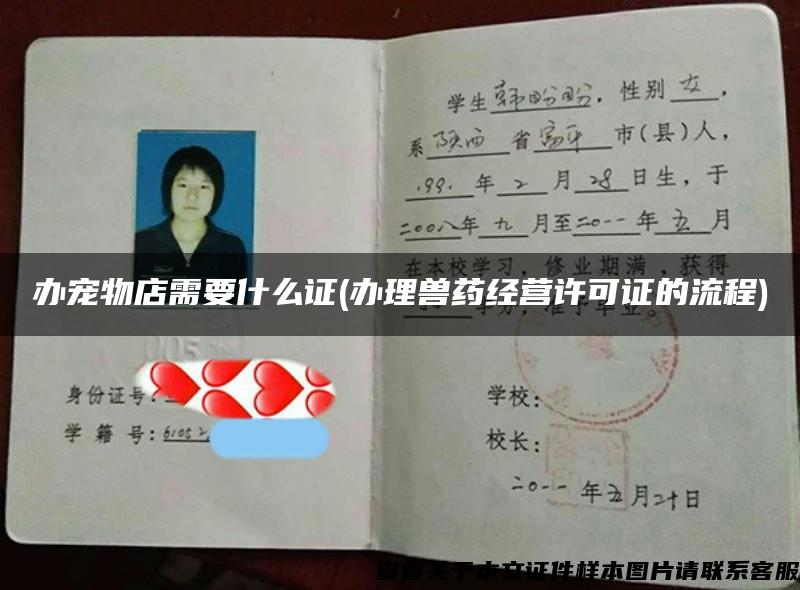 学生韩盼盼,性别女,
系陕西省富平市(县)人,
1991年2月28日生,于
二00八年九月至二0一一年五月
在本校学习,修业期满,获得
办宠物店需要什么证(办理兽药经营许可证的流程)
学分,准予毕业。
身份证号:
学籍号:61052
学校:
校长:
二0一一年五月二十日
查看关于本文证件样本图片请联系客服